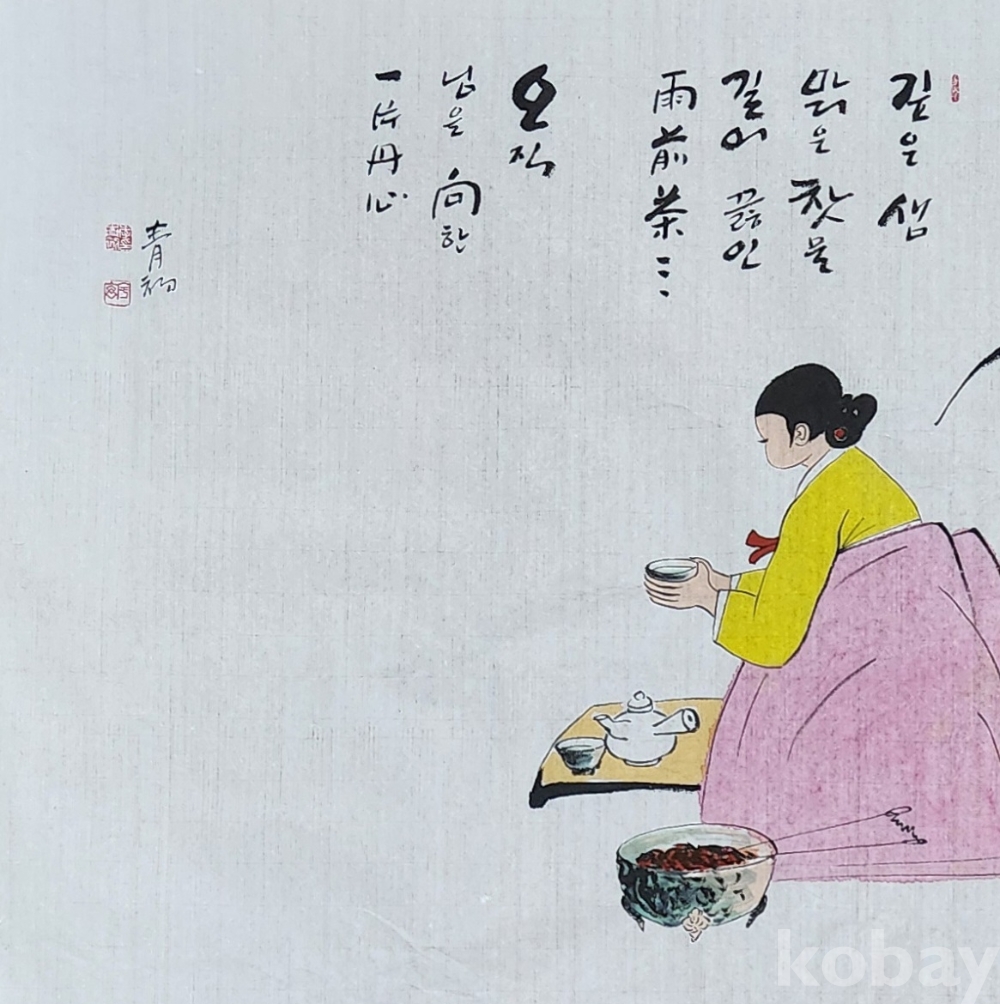 깊은 샘
맑은 찻물
길어 끓인
雨前茶
오직
님을 向한
一片丹心
青
kobay